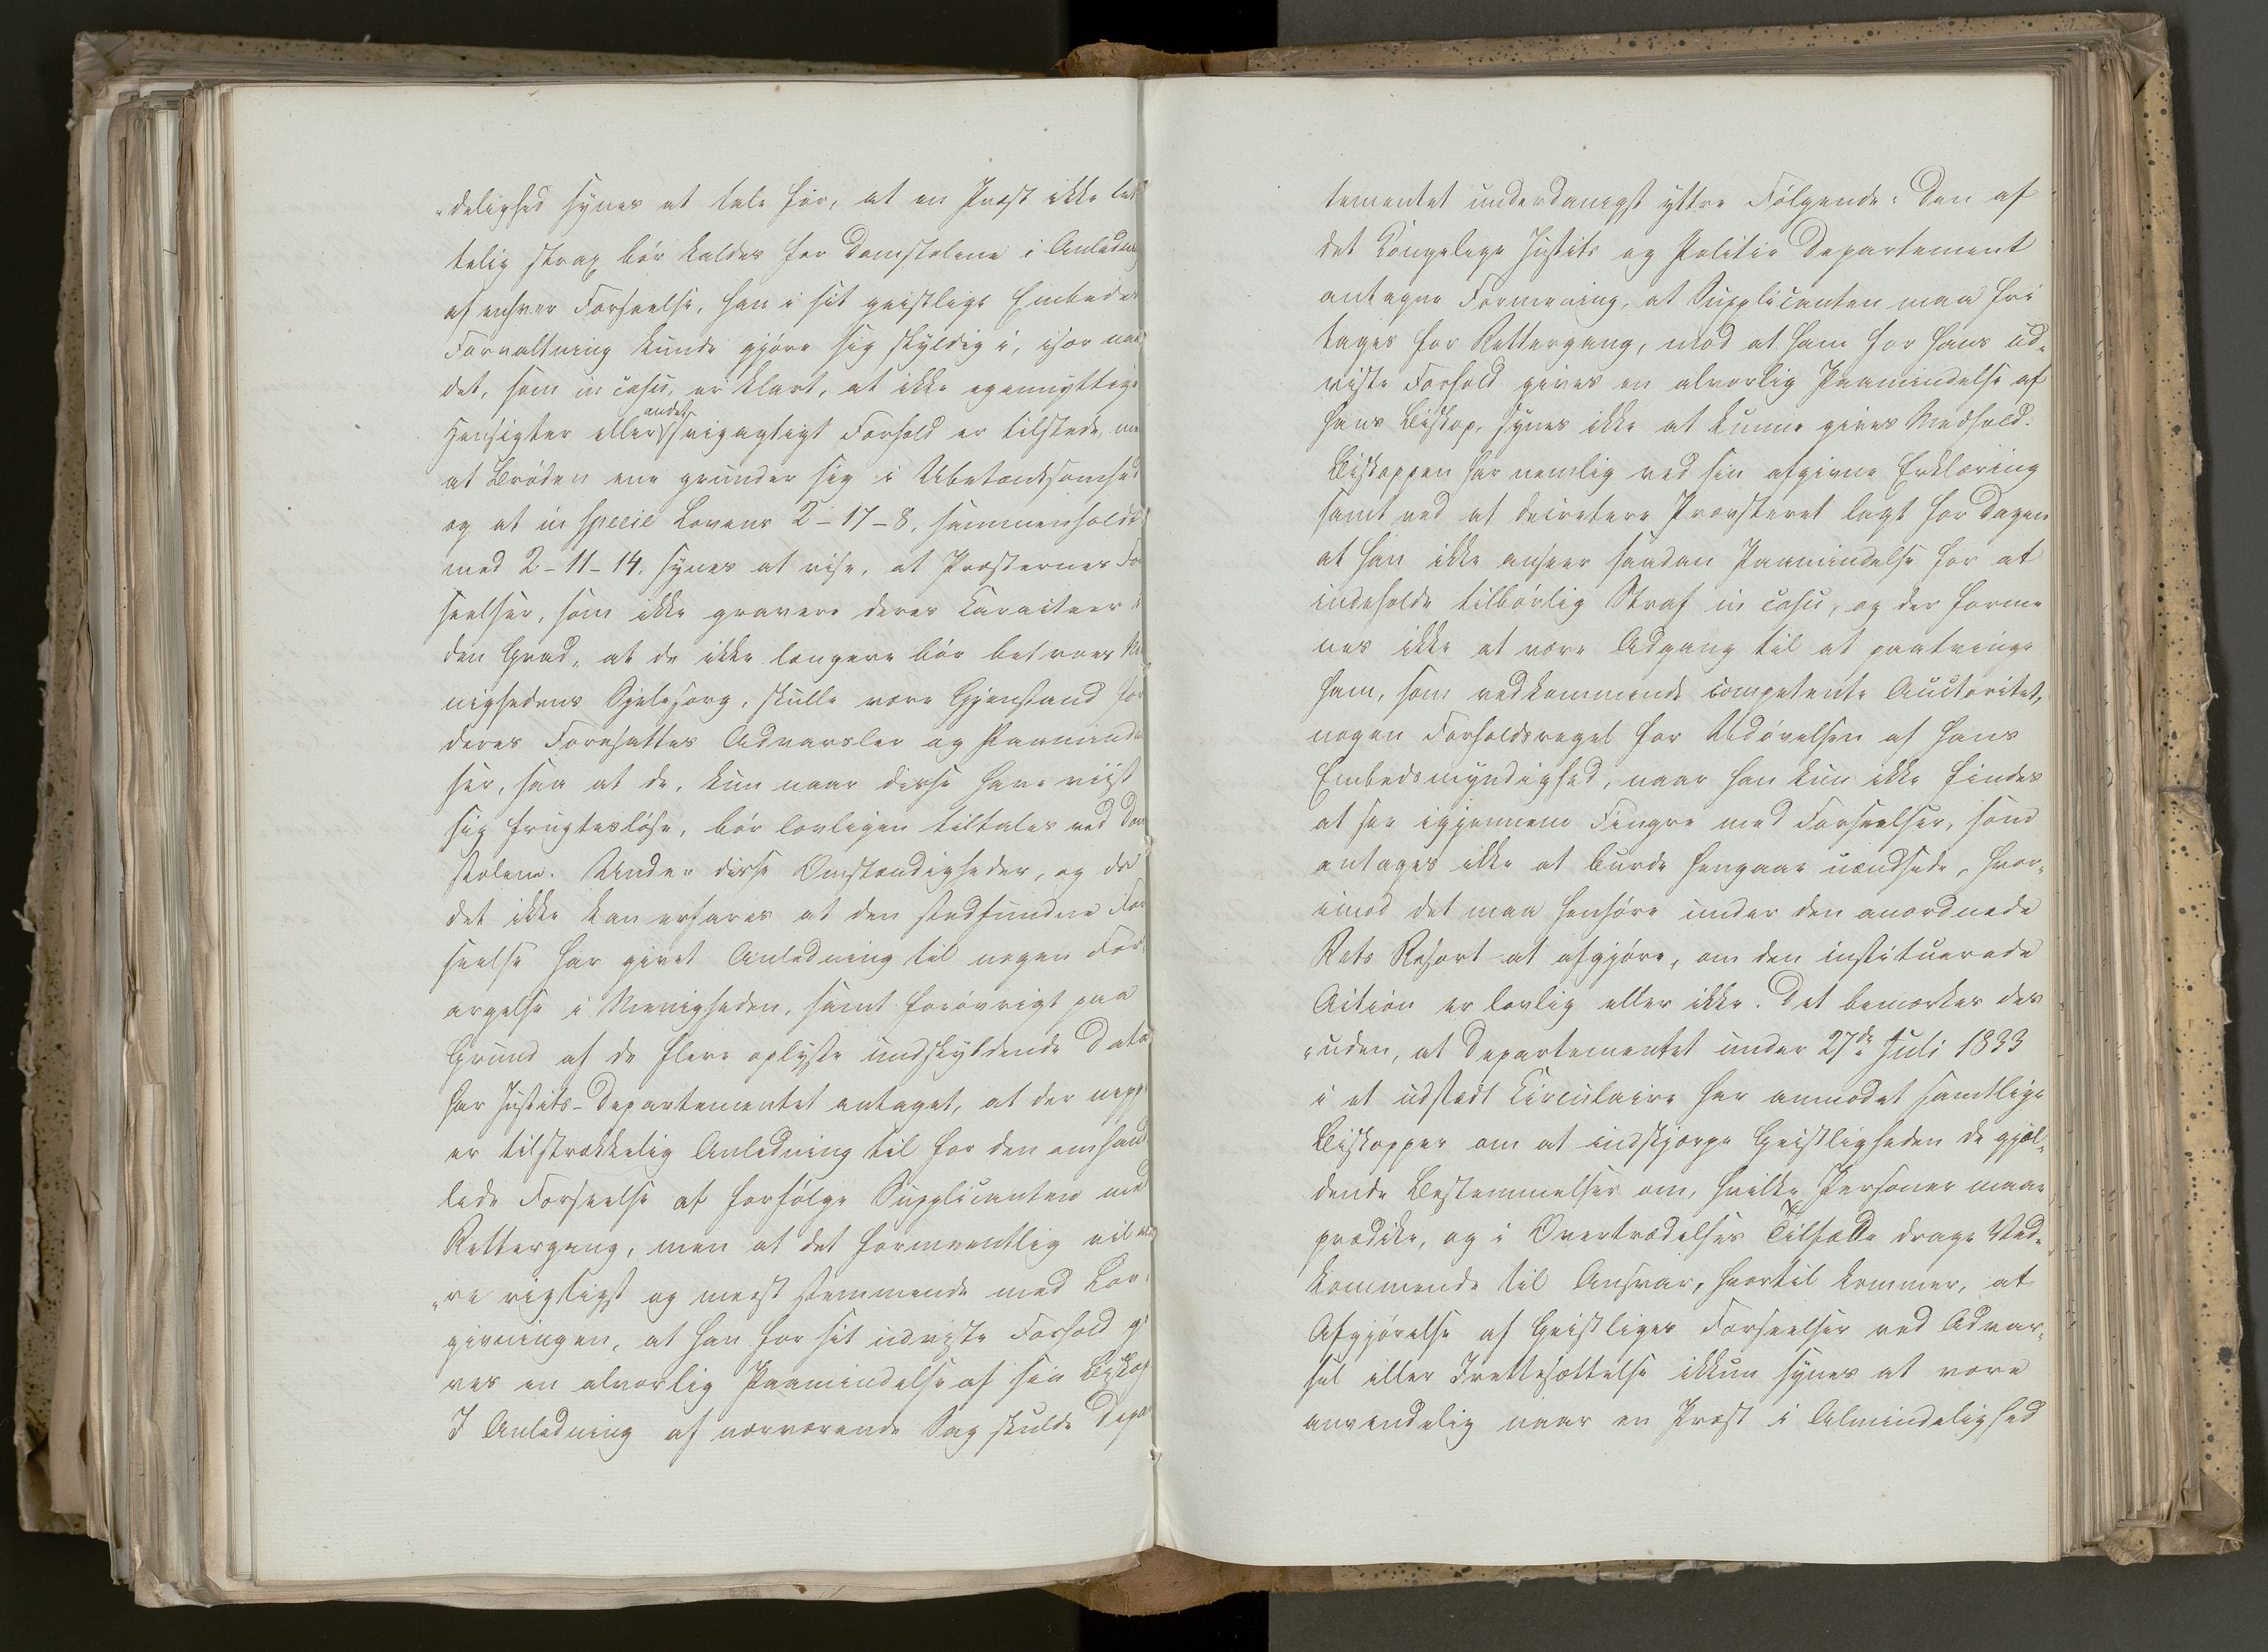 "delighed synes at tale for, at en Præst ikke let
telig strax bør kaldes for Domstolene i Anledning
af enhver Forseelse, han i sit geistlige Embedes
Forvaltning kunde gjøre sig skyldig i, især naar
det, som in casu, er klart, at ikke egennyttige
Hensigter eller andet svigagtigt Forhold er tilstede, men
at Brøden ene grunder sig i Ubetænksomhed
og at in specie Lovens 2-17-8, sammenholdt
med 2-11-14, synes at vise, at Præsternes For
seelser, som ikke gravere deres Caracteer i
den Grad, at de ikke længere bør betroes Me
nighedens Sjelesorg, skulle være Gjenstand for
deres Foresattes Advarsler og Paamindel
ser, saa at de, kun naar disse have viist
sig frugtesløse, bør lovligen tiltales ved Dom
stolene. Under disse Omstændigheder, og da
det ikke kan erfares at den stedfundne For
seelse har givet Anledning til nogen For
argelse i Menigheden, samt forøvrigt paa
Grund af de flere oplyste undskyldende Data
har Justits-Departementet antaget, at der neppe
er tilstrækkelig Anledning til for den omhand
lede Forseelse at forfølge Supplicanten med
Rettergang, men at det formeentlig vil væ
"re rigtigst og meest stemmende med Lov
givningen, at han for sit udviste Forhold gi
ves en alvorlig Paamindelse af sin Biskop
I Anledning af nærværende Sag skulde Depar
tementet underdanigst yttre Følgende: Den af
det Kongelige Justits og Politie Departement
antagne Formening, at Supplicanten maa fri
tages for Rettergang, mod at ham for hans ud¬
viste Forhold gives en alvorlig Paamindelse af
hans Biskop, synes ikke at kunne gives Medhold.
Biskoppen har nemlig ved sin afgivne Erklæring
samt ved at decretere Provsteret lagt for Dagen
at han ikke anseer saadan Paamindelse for at
indeholde tilbørlig Straf in casu, og der forme
nes ikke at være Adgang til at paatvinge
ham, som vedkommende competente Auctoritet,
nogen Forholdsregel for Udøvelsen af hans
Embedsmyndighed, naar han kun ikke findes
at see igjennem Fingre med Forseelser, som
antages ikke at burde hengaae uændsede, hvor¬
imod det maa henhøre under den anordnede
Rets Resort at afgjøre, om den instituerede
Action er lovlig eller ikke. Det bemærkes des
"uden, at Departementet under 27de Juli 1833
i et udstedt Circulaire har anmodet samtlige
Biskopper om at indskjærpe Geistligheden de gjæl¬
dende Bestemmelser om, hvilke Personer maae
prædike, og i Overtrædelses Tilfælde drage Ved¬
kommende til Ansvar, hvortil kommer, at
Afgjørelse af Geistliges Forseelser ved Advar¬
sel eller Irettesættelse ikkun synes at være
anvendelig naar en Præst i Almindelighed